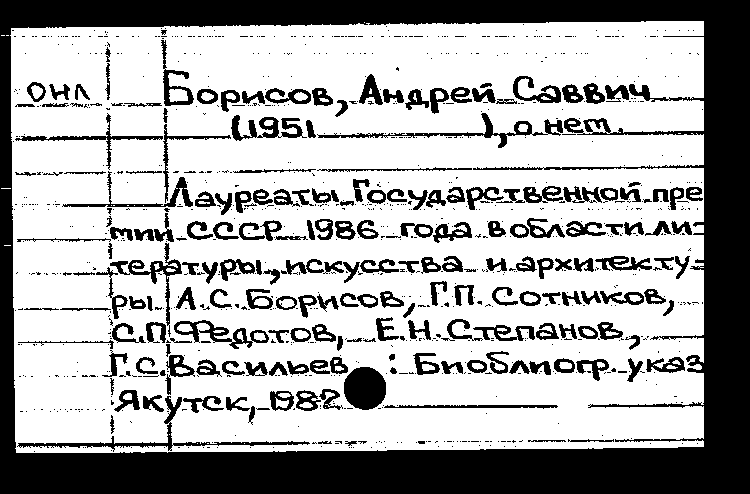 ОНЛ Борисов, Андрей Саввич
(1951 ), о нем.
Лауреаты Государственной пре
мии СССР 1986 года в области ли-
тературы, искусства и архитекту-
ры А.С. Борисов, Г.П. Сотников,
С.П. Федотов, Е.Н. Степанов,
Г.С. Васильев : Биоблиогр. указ
Якутск, 1987